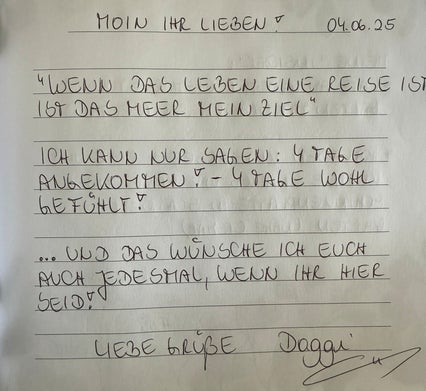 MOIN IHR LIEBEN! 04.06.25
"WENN DAS LEBEN EINE REISE IST
IST DAS MEER MEIN ZIEL"
ICH KANN NUR SAGEN: 4 TAGE
ANGEKOMMEN! - 4 TAGE WOHL
GEFÜHLT!
... UND DAS WÜNSCHE ICH EUCH
AUCH JEDESMAL, WENN IHR HIER
SEID!
LIEBE GRÜßE Daggi